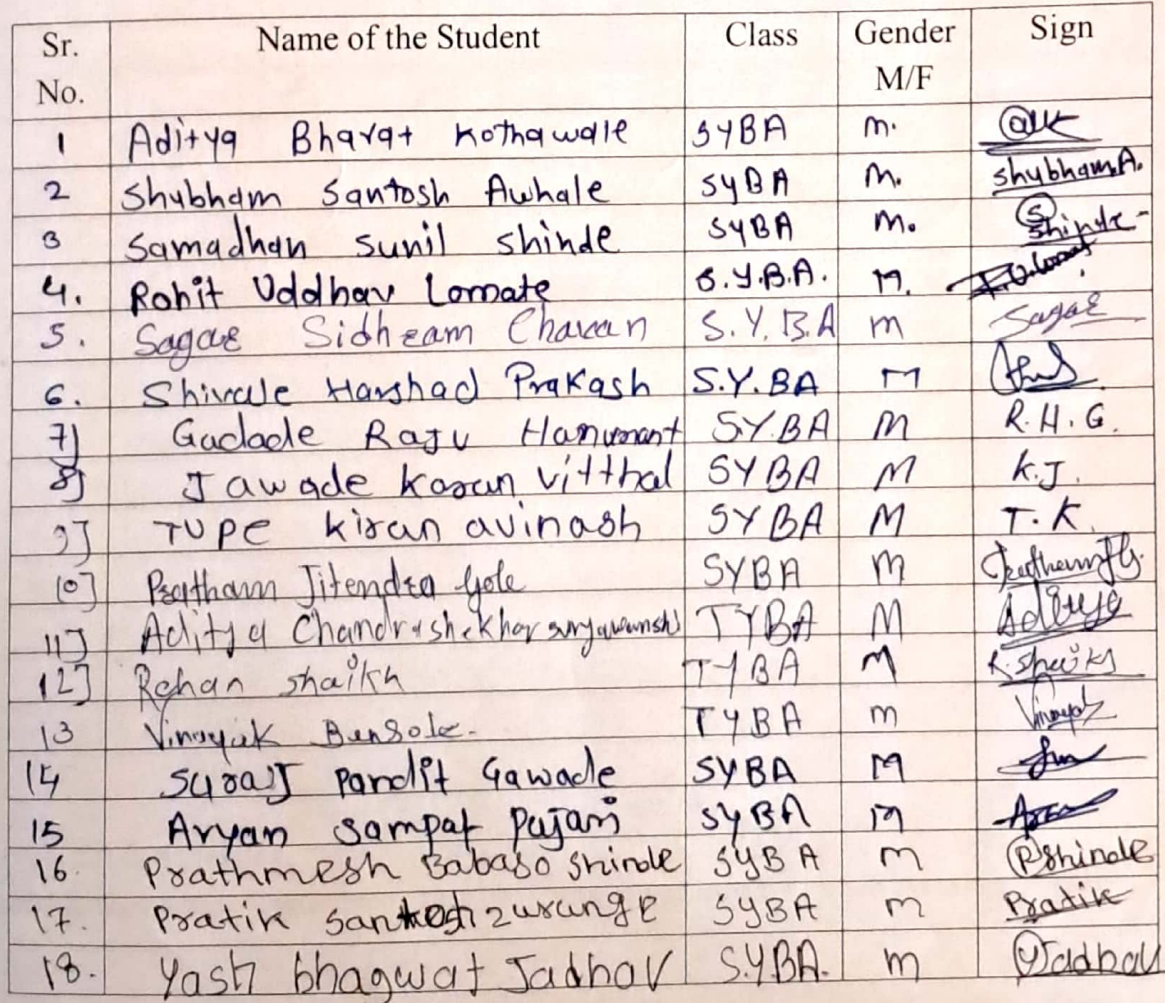 Sr. No. Name of the Student Class Gender M/F Sign
1 Aditya Bharat Kothawale SYBA M.
2 Shubham Santosh Awhale SYBA M. Shubham.A.
3 Samadhan Sunil Shinde SYBA M. Shinde
4. Rohit Uddhav Lomate S.Y.B.A. M.
5. Sagar Sidhram Chavan S.Y.B.A M Sagar
6. Shivale Harshad Prakash S.Y.BA M
7] Gadade Raju Hanumant S.Y.BA M R.H.G.
8] Jawade Karan Vitthal SYBA M K.J.
9] TUPE Kiran avinash SYBA M T.K.
10] Pratham Jitendra Gole SYBA M
11] Aditya Chandrashekhar suryawanshi TYBA M Aditya
12] Rehan Shaikh TYBA M R.Shaikh
13 Vinayak Bansole. TYBA M Vinayak
14 Suraj Pandit Gawade SYBA M
15 Aryan Sampat Pujari SYBA M
16. Prathmesh Babaso Shinde SYBA M PShinde
17. Pratik Santosh zurange SYBA M Pratik
18. Yash bhagwat Jadhav S.Y.BA. M YJadhav